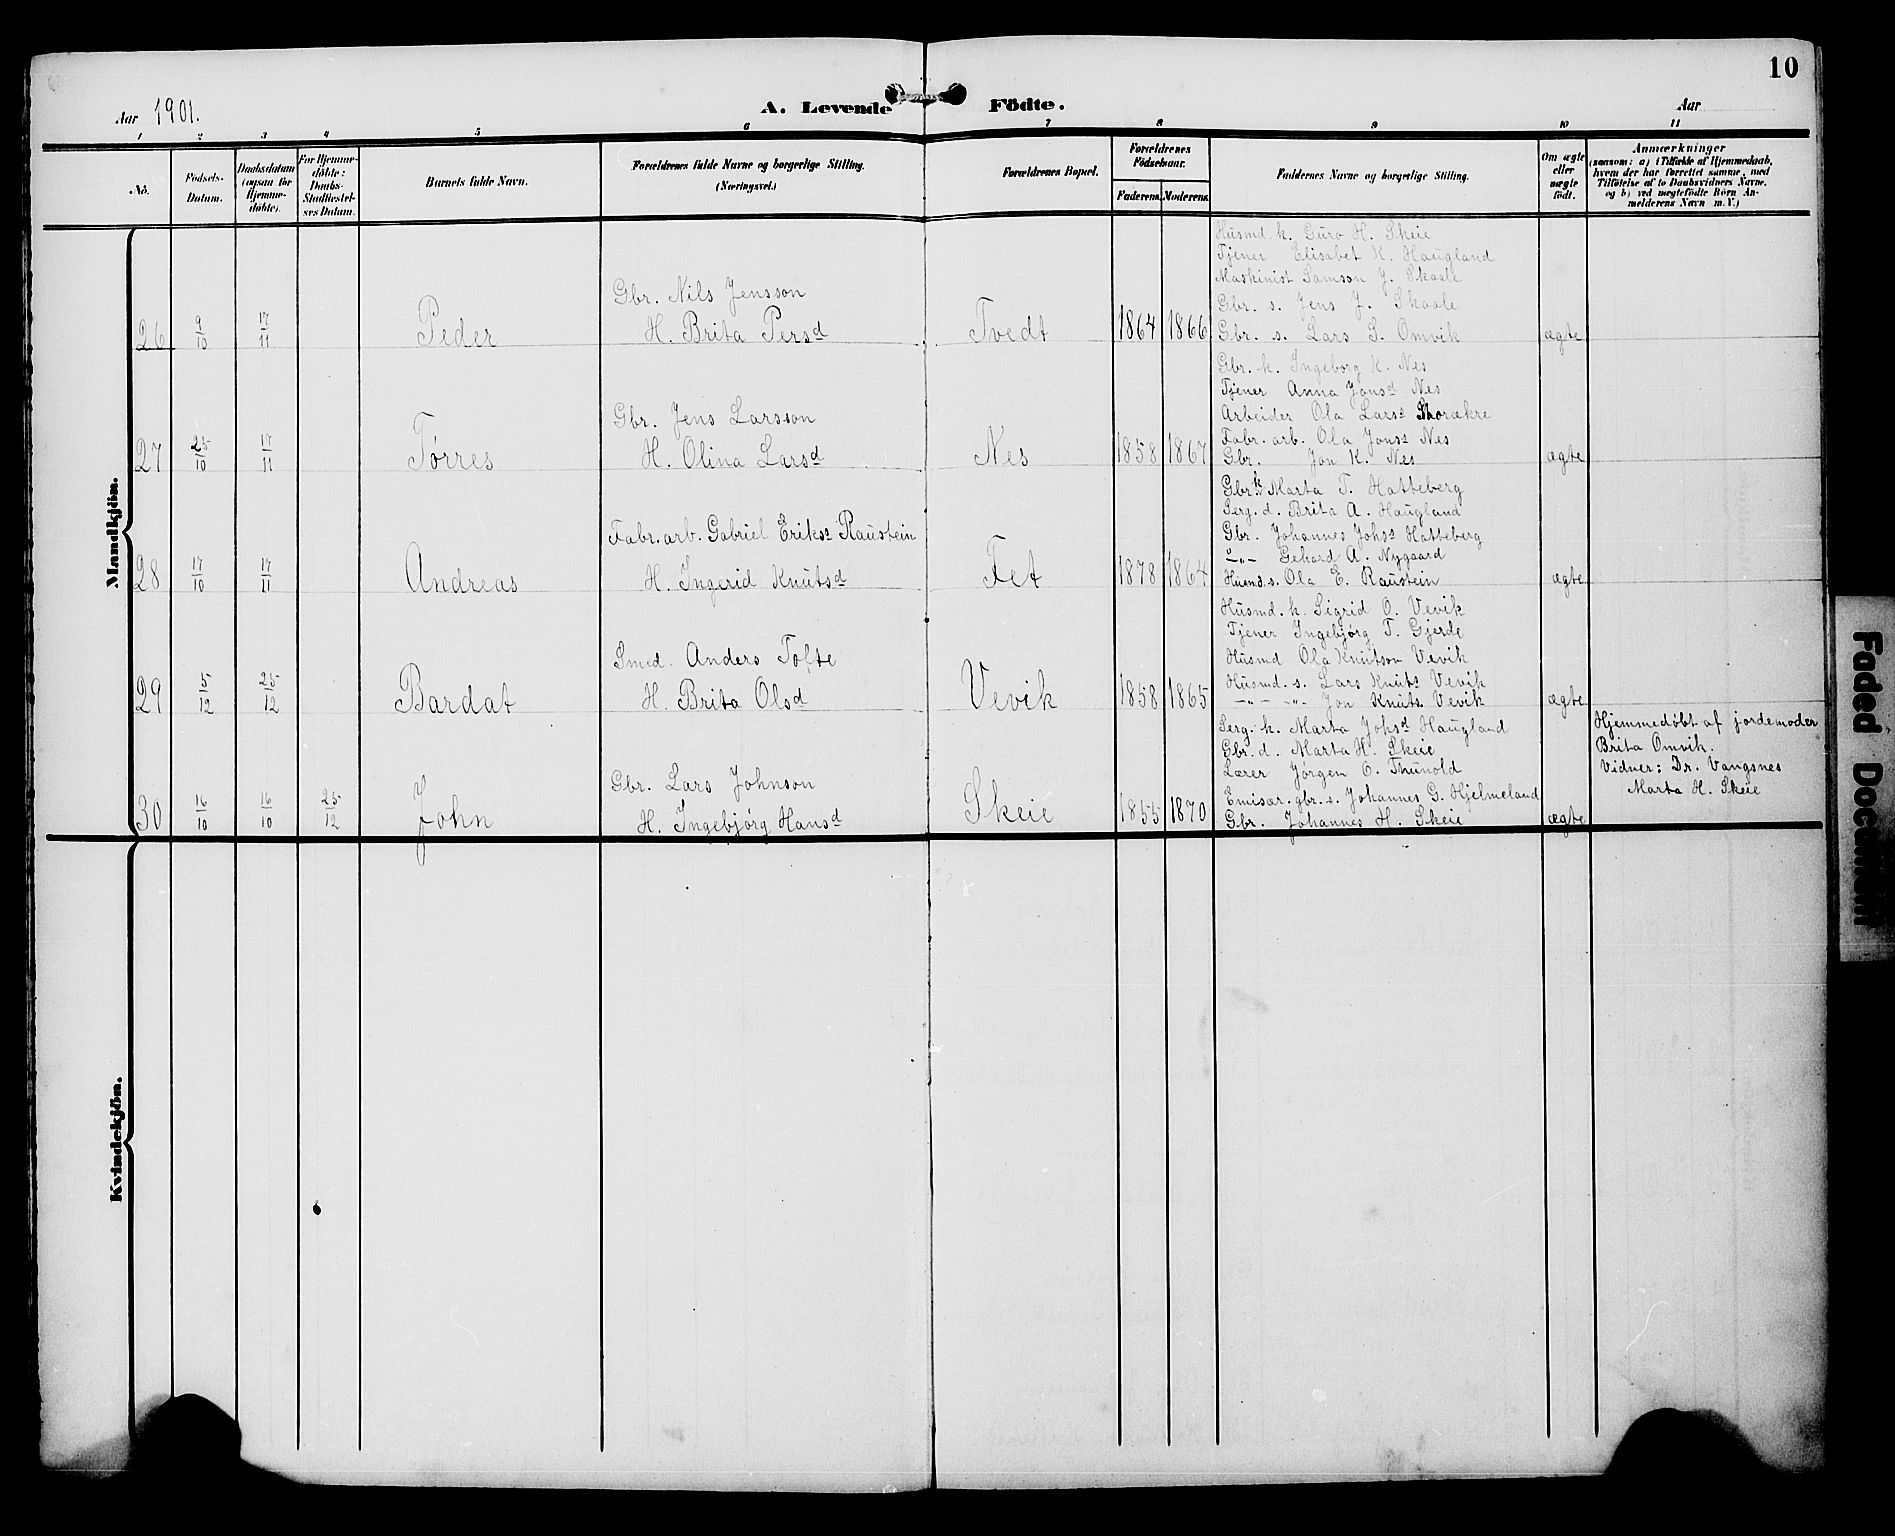 10
Aar 1901.
A. Levende Födte.
Aar
1 2 3 4 5 6 7 8 9 10 11
No.
Födsels-
Datum.
Daabsdatum
(ogsaa for
Hjemme-
döbte).
For Hjemme-
döbte:
Daabs-
Stadfæstel-
ses Datum.
Barnets fulde Navn.
Forældrenes fulde Navne og borgerlige Stilling.
(Næringsvei.)
Forældrenes Bopæl.
Forældrenes
Födselsaar.
Faderens. Moderens.
Faddernes Navne og borgerlige Stilling.
Om ægte
eller
uægte
födt.
Anmærkninger
(saasom: a) i Tilfælde af Hjemmedaab,
hvem der har forrettet samme, med
Tilföielse af to Daabsvidners Navne,
og b) ved uægtefödte Börn An-
melderens Navn m. V.)
Mandkjön.
Husmd. k. Guro H. Skeie
Tjener Elisabet K. Haugland
Maskinist Samson J. Skaale
Gbr. Nils Jensson
Gbr. s. Jens J. Skaale
26 9/10 17/11 Peder H. Brita Persd Tvedt 1864 1866 Gbr. s. Lars S. Omvik ægte
Gbr. k. Ingeborg K. Nes
Tjener Anna Jonsd Nes
Gbr. Jens Larsson
Arbeider Ola Larss
Fabr. arb. Ola Jonss Nes
27 25/10 17/11 Tørres H. Olina Larsd Nes 1858 1867 Gbr. Jon K. Nes ægte
Gbr. k. Marta T. Hatteberg
Serg. d. Brita A. Haugland
Fabr. arb. Gabriel Erikss Raustein
Gbr. Johannes Johss Hatteberg
-"- Gehard A. Nygaard
28 17/10 17/11 Andreas H. Ingerid Knutsd Fet 1878 1864 Husmd. s. Ola E. Raustein ægte
Husmd. k. Sigrid O. Vevik
Tjener Ingebjørg T. Gjerde
Smed. Anders Tofte
Husmd Ola Knutson Vevik
Husmd. s. Lars Knuts Vevik
29 5/12 25/12 Bardat H. Brita Olsd Vevik 1858 1865 -"- -"- Jon Knuts Vevik ægte
Serg. k. Marta Johsd Haugland
Gbr. d. Marta H. Skeie
Lærer Jørgen O. Thunold
Gbr. Lars Johnson
Emisær. gbr. s. Johannes G. Hjelmeland
30 16/10 16/10 25/12 John H. Ingebjørg Hansd Skeie 1855 1870 Gbr. Johannes H. Skeie ægte
Hjemmedøbt af jordemoder
Brita Omvik.
Vidner: Dr. Vangsnes
Marta H. Skeie
Kvindekjön.
Faded Document